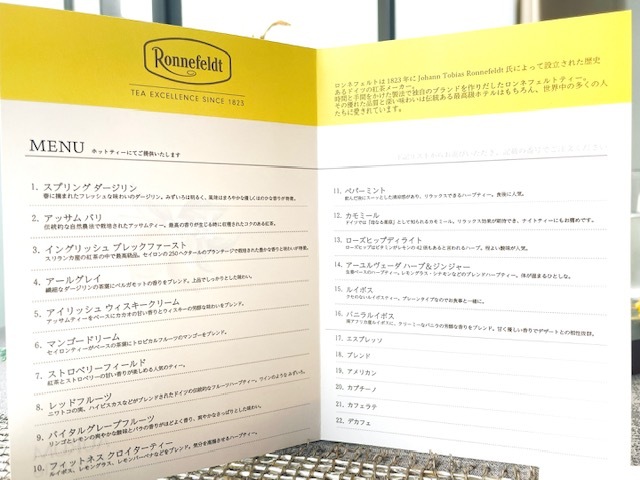 Ronnefeldt
TEA EXCELLENCE SINCE 1823
MENU ホットティーにてご提供いたします
1. スプリング ダージリン
春に摘まれたフレッシュな味わいのダージリン。みずいろは明るく、風味はまろやかな優しくほのかな香りが特徴。
2. アッサム バリ
伝統的な自然農法で栽培されたアッサムティー。最高の香りが生じる時に収穫されたコクのある紅茶。
3. イングリッシュ ブレックファースト
スリランカ産の紅茶の中で最高級品。セイロンの250ヘクタールのプランテージで栽培された豊かな香りと味わいが特徴。
4. アールグレイ
繊細なダージリンの茶葉にベルガモットの香りをブレンド。上品でしっかりとした味わい。
5. アイリッシュ ウィスキークリーム
アッサムティーをベースにカカオの甘い香りとウィスキーの芳醇な味わいをブレンド。
6. マンゴードリーム
セイロンティーがベースの茶葉にトロピカルフルーツのマンゴーをブレンド。
7. ストロベリーフィールド
紅茶とストロベリーの甘い香りが楽しめる人気のティー。
8. レッドフルーツ
ニワトコの実、ハイビスカスなどがブレンドされたドイツの伝統的なフルーツハーブティー。ワインのような みずいろ。
9. バイタルグレープフルーツ
リンゴとレモンの爽やかな酸味とバラの香りがほどよく香り、爽やかなさっぱりとした味わい。
10. フィットネス クロイターティー
ルイボス、レモングラス、レモンバーベナなどをブレンド。気分を高揚させるハーブティー。
ロンネフェルトは1823年にJohann Tobias Ronnefeldt氏によって設立された歴史
あるドイツの紅茶メーカー。
時間と手間をかけた製法で独自のブランドを作りだしたロンネフェルトティー。
その優れた品質と深い味わいは伝統ある最高級ホテルはもちろん、世界中の多くの人
たちに愛されています。
11. ペパーミント
飲んだ後にスーッとした清涼感があり、リラックスできるハーブティー。食後に人気。
12. カモミール
ドイツでは「母なる薬草」として知られるカモミール。リラックス効果が期待でき、ナイトティーにもお薦めです。
13. ローズヒップディライト
ローズヒップはビタミンがレモンの42倍もあると言われるハーブ。程よい酸味が人気。
14. アーユルヴェーダ ハーブ＆ジンジャー
生姜ベースのハーブティー。レモングラス・シナモンなどのブレンドハーブティー。体が温まるひとしな。
15. ルイボス
クセのないルイボスティー。プレーンタイプなのでお食事と一緒に。
16. バニラルイボス
南アフリカ産ルイボスに、クリーミーなバニラの芳醇な香りをブレンド。甘く優しい香りでデザートとの相性抜群。
17. エスプレッソ
18. ブレンド
19. アメリカン
20. カプチーノ
21. カフェラテ
22. デカフェ